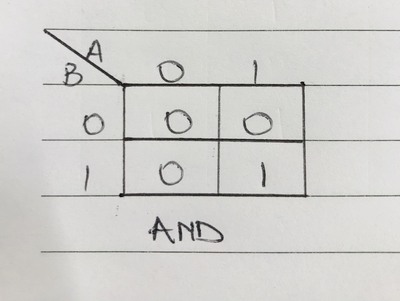 A
B 0 1
0 0 0
1 0 1
AND